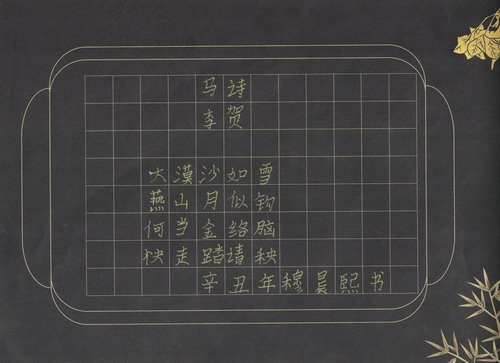 马诗
李贺
大漠沙如雪
燕山月似钩
何当金络脑
快走踏清秋
辛丑年穆晨熙书